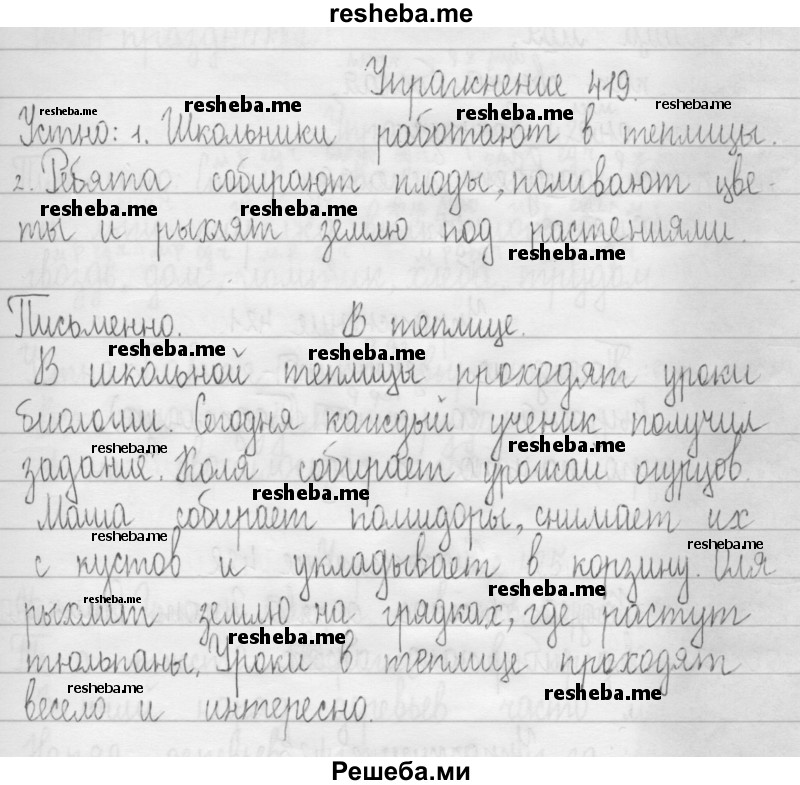 resheba.me
Упражнение 419.
resheba.me resheba.me resheba.me resheba.me
Устно: 1. Школьники работают в теплицы.
2. Ребята собирают плоды, поливают цве-
resheba.me resheba.me
ты и рыхлят землю под растениями.
resheba.me
Письменно. В теплице.
resheba.me resheba.me
В школьной теплицы проходят уроки
биологии. Сегодня каждый ученик получил
resheba.me resheba.me
задание. Коля собирает урожай огурцов.
resheba.me
Маша собирает помидоры, снимает их
resheba.me resheba.me
с кустов и укладывает в корзину. Оля
resheba.me resheba.me
рыхлит землю на грядках, где растут
resheba.me
тюльпаны. Уроки в теплице проходят
resheba.me resheba.me
весело и интересно.
Решеба.ми